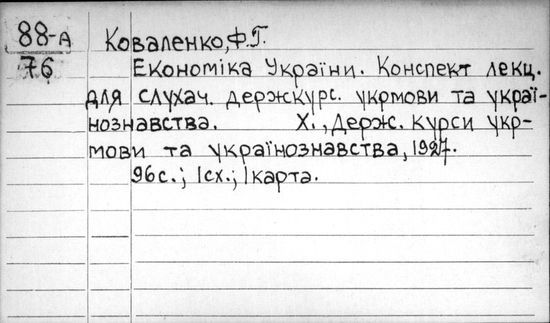 88-А
76
Коваленко, Ф.Г.
Економіка України. Конспект лекц.
для слухач. держкурс. укрмови та украї-
нознавства. Х., Держ. курси укр-
мови та українознавства, 1927.
96с.; 1сх.; 1карта.